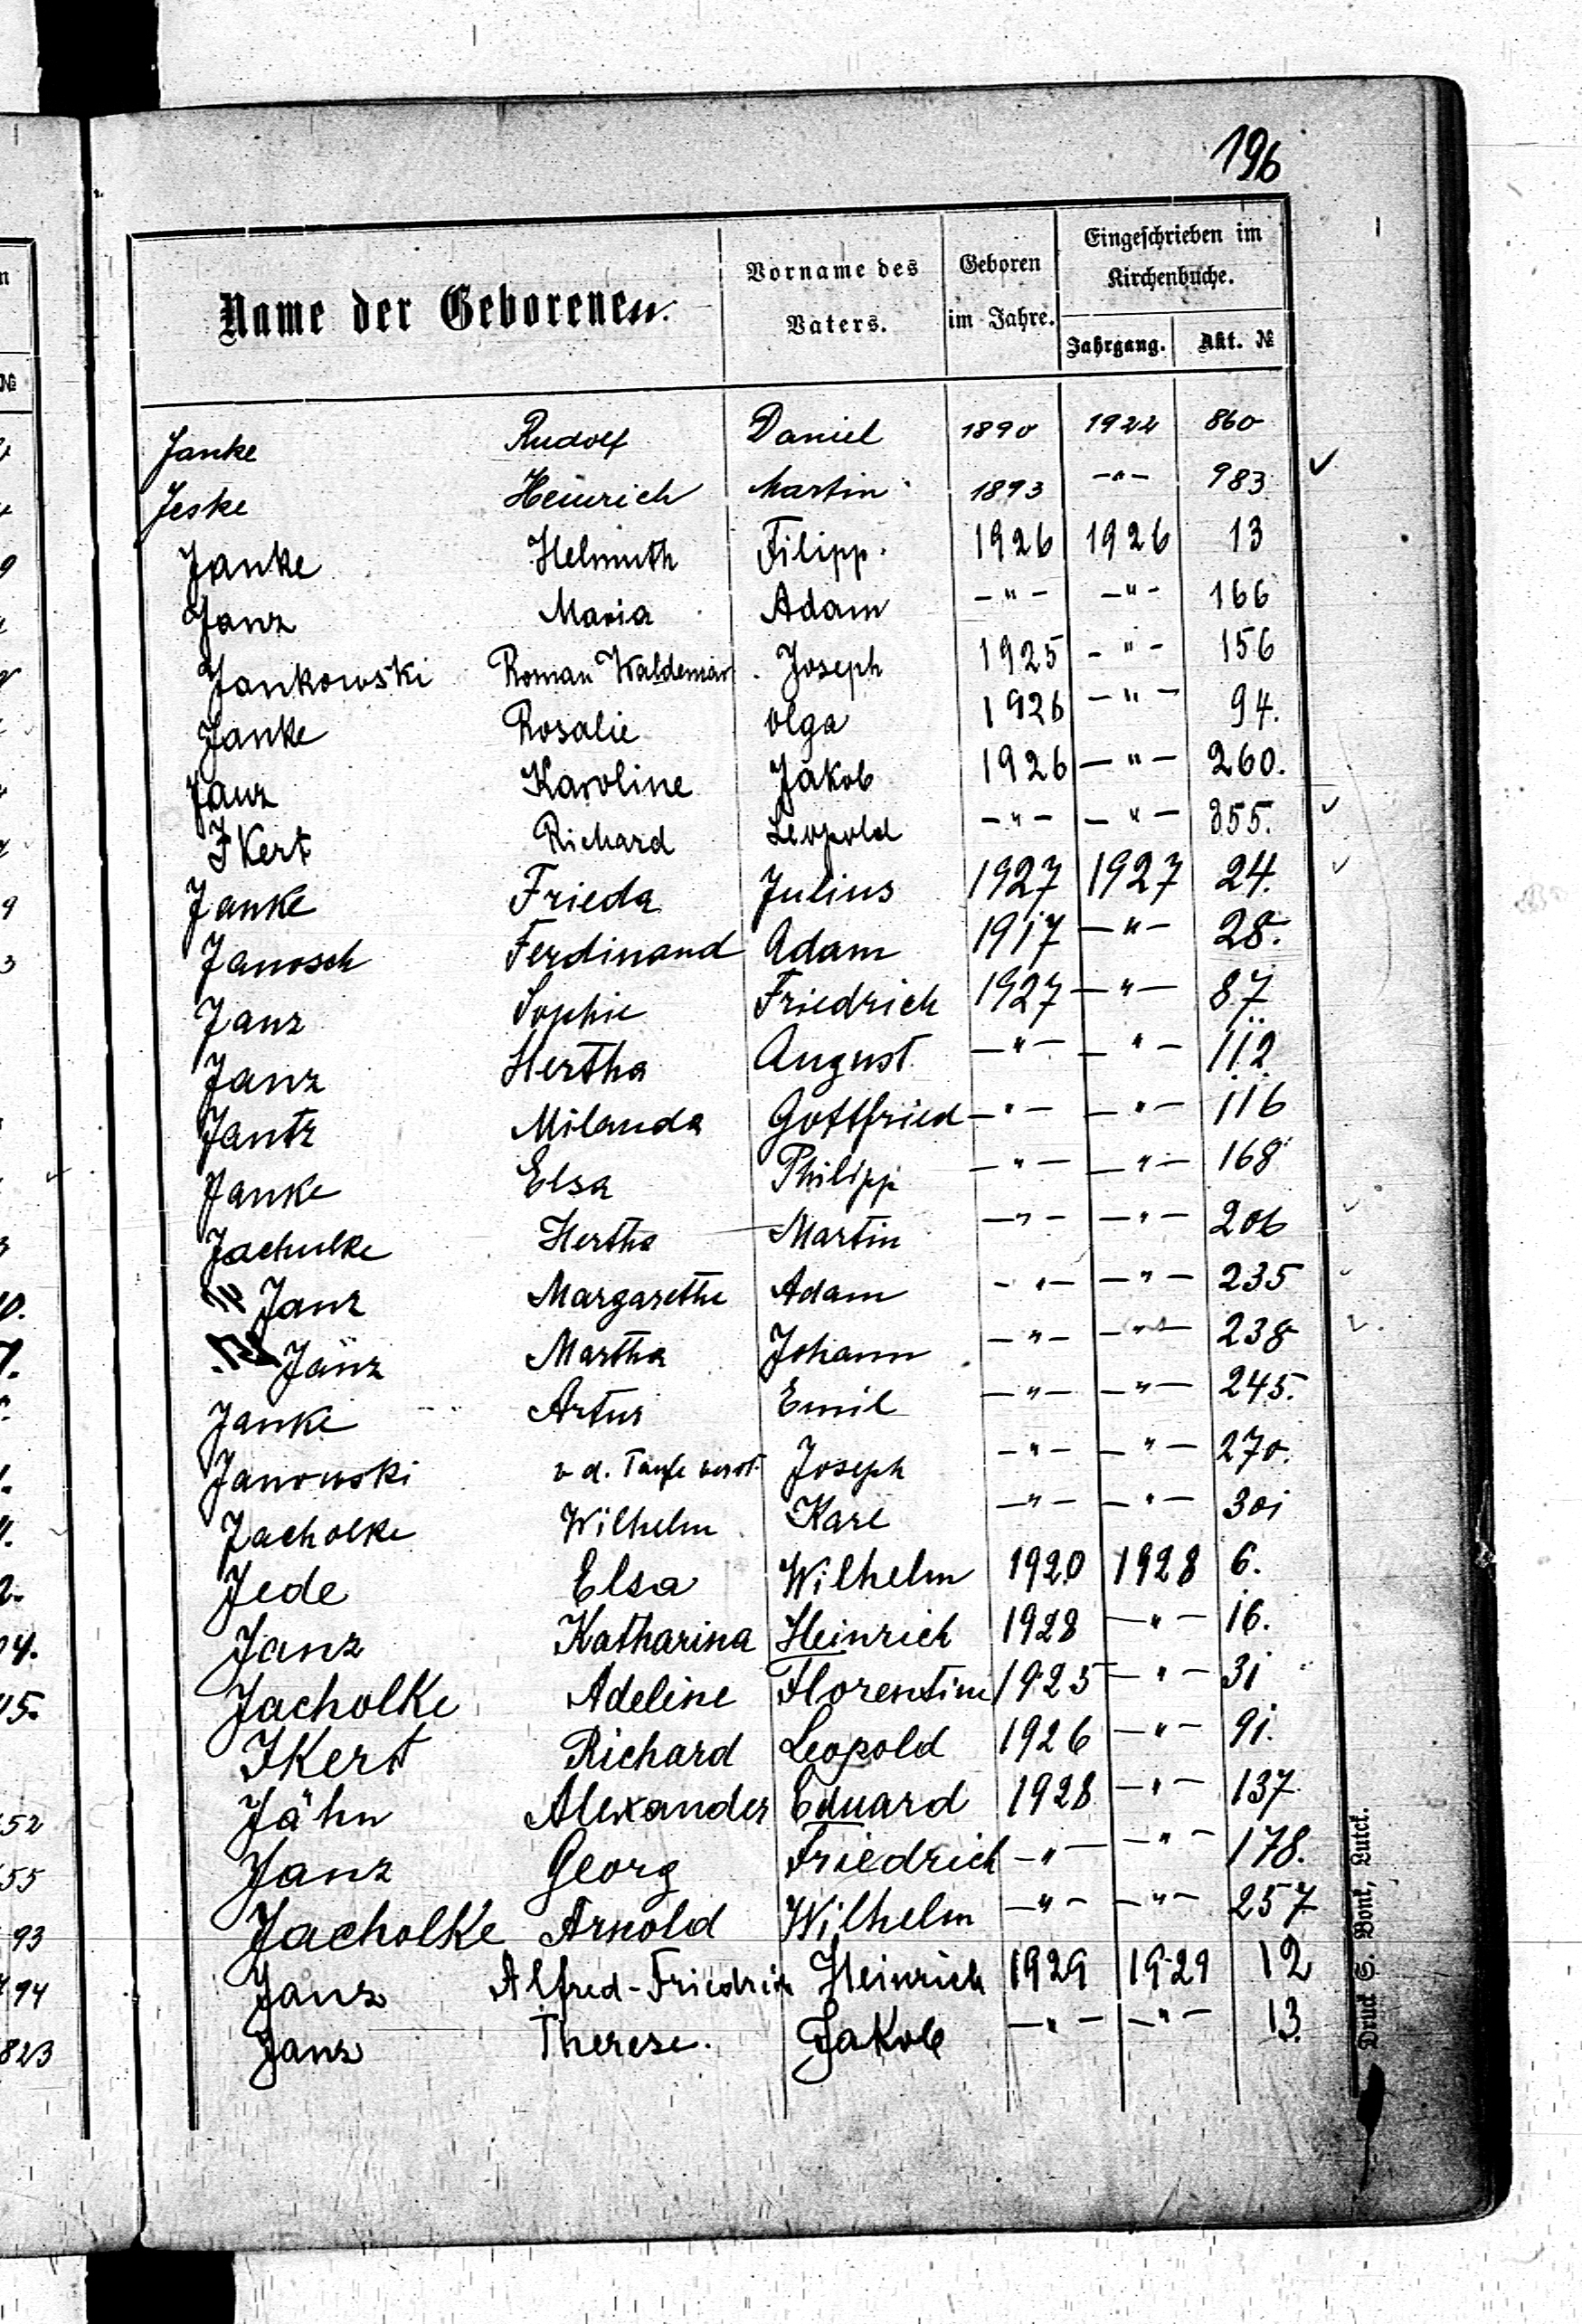 196
Name der Geborenen. Vorname des Vaters. Geboren im Jahre. Eingeschrieben im Kirchenbuche.
Jahrgang. Akt. №
Janke Rudolf Daniel 1890 1922 860
Jeske Heinrich Martin 1893 -"- 983
Janke Helmuth Filipp. 1926 1926 13
Janz Maria Adam -"- -"- 166
Jankowski Roman Waldemar Joseph 1925 -"- 156
Janke Rosalie Olga 1926 -"- 94.
Janz Karoline Jakob 1926 -"- 260.
Ikert Richard Leopold -"- -"- 355.
Janke Frieda Julius 1927 1927 24.
Janosch Ferdinand Adam 1917 -"- 28.
Janz Sophie Friedrich 1927 -"- 87
Janz Hertha August -"- -"- 112
Jantz Milanda Gottfried -"- -"- 116
Janke Elsa Philipp -"- -"- 168
Jachulke Hertha Martin -"- -"- 206
Janz Margarethe Adam -"- -"- 235
Janz Martha Johann -"- -"- 238
Janke Artur Emil -"- -"- 245.
Janowski v d. Taufe verst. Joseph -"- -"- 270.
Jacholke Wilhelm Karl -"- -"- 301
Jede Elsa Wilhelm 1920 1928 6.
Janz Katharina Heinrich 1928 -"- 16.
Jacholke Adeline Florentine 1925 -"- 31
Ikert Richard Leopold 1926 -"- 91.
Jähn Alexander Eduard 1928 -"- 137
Janz Georg Friedrich -"- -"- 178.
Jacholke Arnold Wilhelm -"- -"- 257
Janz Alfred-Friedrich Heinrich 1929 1929 12
Janz Therese. Jakob -"- -"- 13.
Druck S. Bonk, Lutck.
52
55
93
94
823